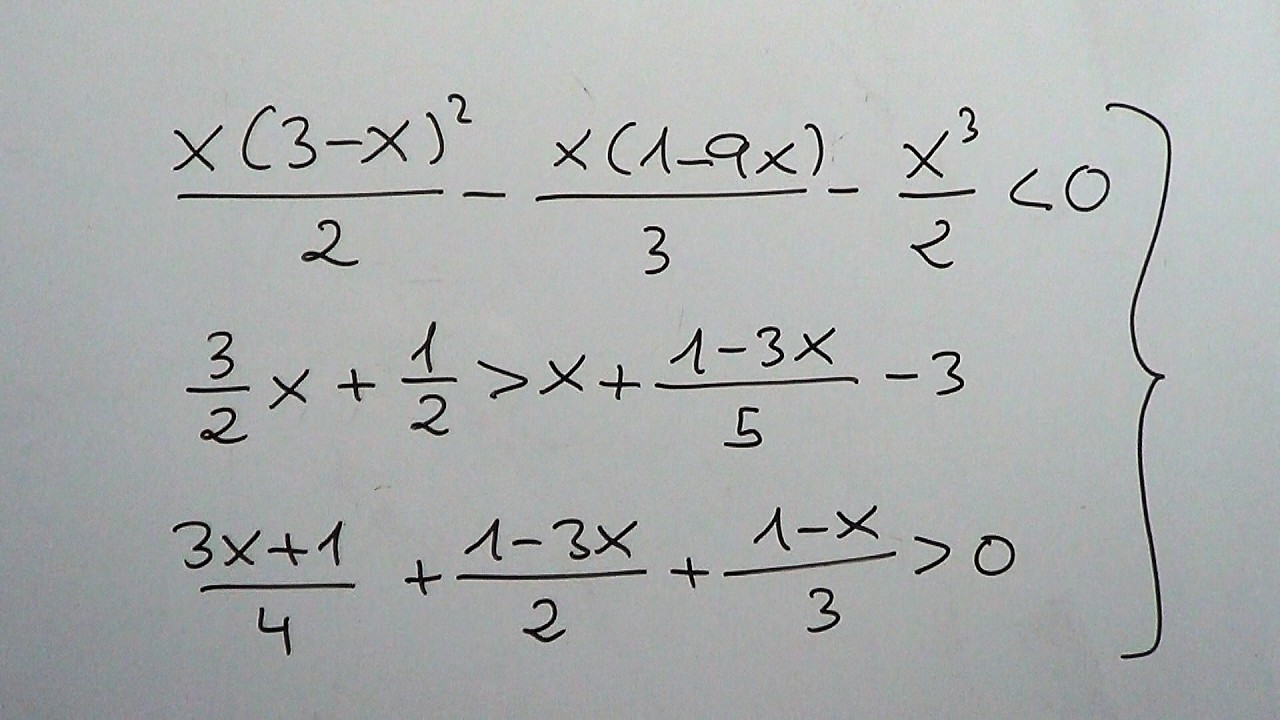 x(3-x)²/2 - x(1-9x)/3 - x³/2 < 0
3/2 x + 1/2 > x + (1-3x)/5 - 3
(3x+1)/4 + (1-3x)/2 + (1-x)/3 > 0